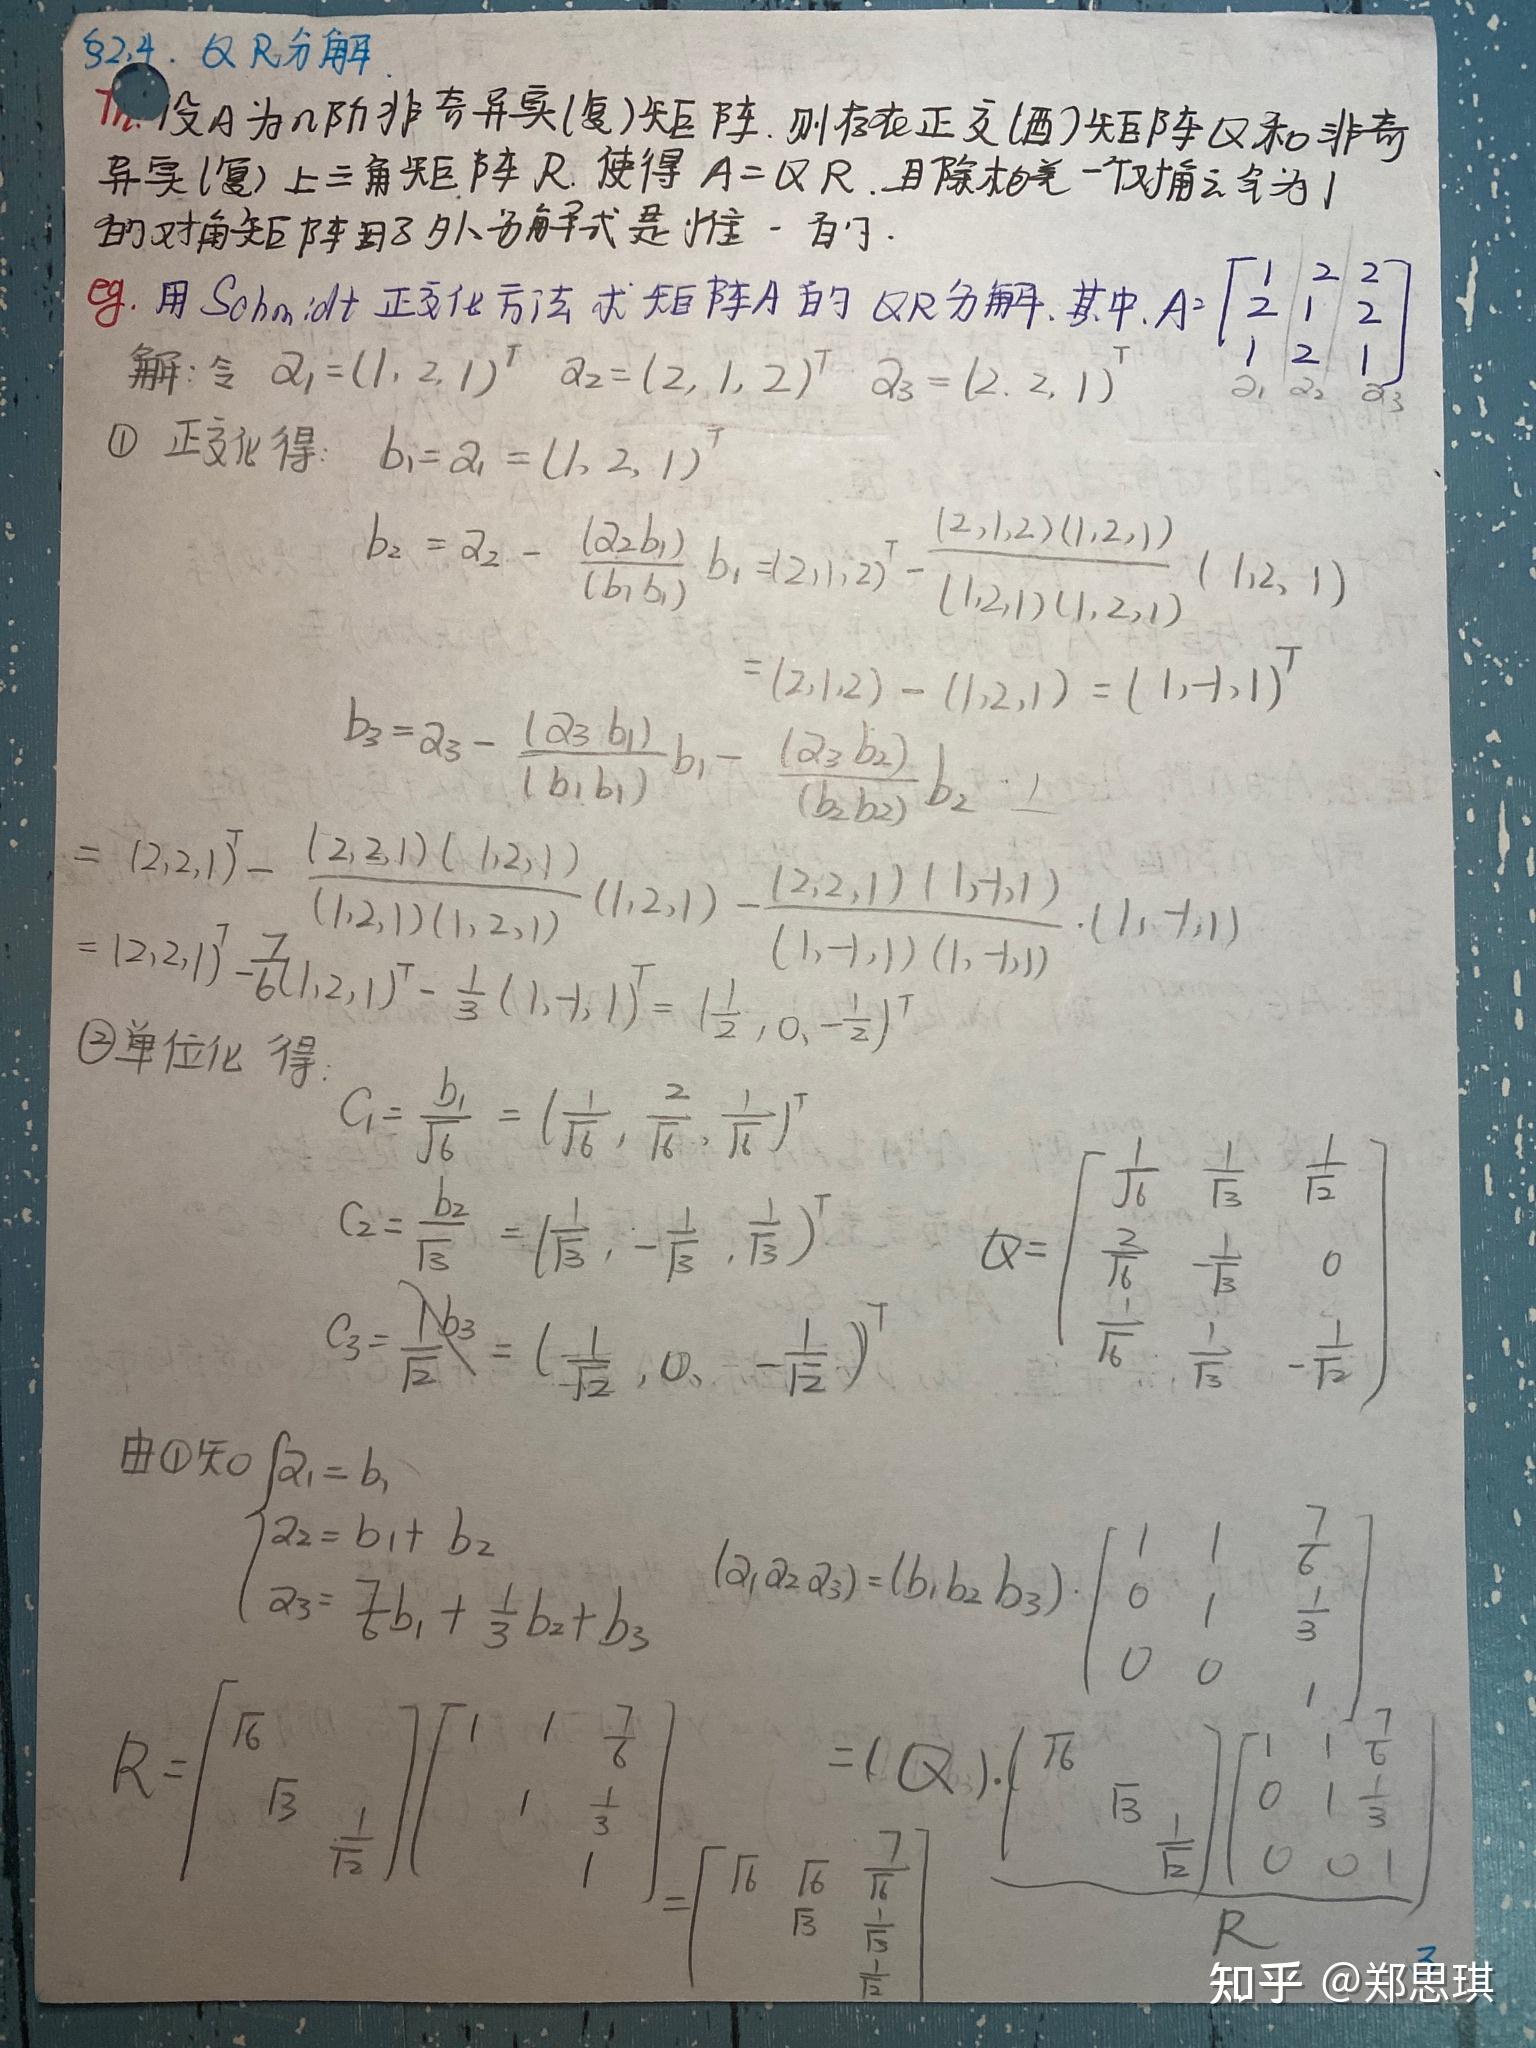 §2.4. QR分解.
Th. 设A为n阶非奇异实(复)矩阵. 则存在正交(酉)矩阵Q和非奇
异实(复)上三角矩阵R. 使得 A=QR. 且除相差一个对角元全为1
的对角矩阵因子外分解式是惟一的.
eg. 用Schmidt正交化方法求矩阵A的QR分解. 其中. A= [1 2 2
2 1 2
1 2 1]
a₁ a₂ a₃
解: 令 a₁=(1,2,1)ᵀ a₂=(2,1,2)ᵀ a₃=(2.2,1)ᵀ
① 正交化得: b₁=a₁=(1,2,1)ᵀ
b₂ = a₂ - (a₂b₁)/(b₁b₁) b₁ =(2,1,2)ᵀ - (2,1,2)(1,2,1)/(1,2,1)(1,2,1) (1,2,1)
=(2,1,2) - (1,2,1) = (1,-1,1)ᵀ
b₃=a₃ - (a₃b₁)/(b₁b₁) b₁ - (a₃b₂)/(b₂b₂) b₂
= (2,2,1)ᵀ - (2,2,1)(1,2,1)/(1,2,1)(1,2,1) (1,2,1) - (2,2,1)(1,-1,1)/(1,-1,1)(1,-1,1) ·(1,-1,1)
= (2,2,1)ᵀ - 7/6(1,2,1)ᵀ - 1/3(1,-1,1)ᵀ = (1/2, 0, -1/2)ᵀ
②单位化得:
C₁= b₁/√6 = (1/√6, 2/√6, 1/√6)ᵀ
C₂= b₂/√3 = (1/√3, -1/√3, 1/√3)ᵀ
C₃= 1/√2 = (1/√2, 0, -1/√2)ᵀ
Q= [1/√6 1/√3 1/√2
2/√6 -1/√3 0
1/√6 1/√3 -1/√2]
由①知 { a₁=b₁
a₂=b₁+b₂
a₃=7/6b₁+1/3b₂+b₃
(a₁a₂a₃)=(b₁b₂b₃)· [1 1 7/6
0 1 1/3
0 0 1]
=(Q)·(√6
√3
1/√2] [1 1 7/6
0 1 1/3
0 0 1]
R
R= [√6
√3
1/√2] [1 1 7/6
1 1/3
1]
= [√6 √6 7/√6
√3 1/√3
1/√2]
3
知乎 @郑思琪